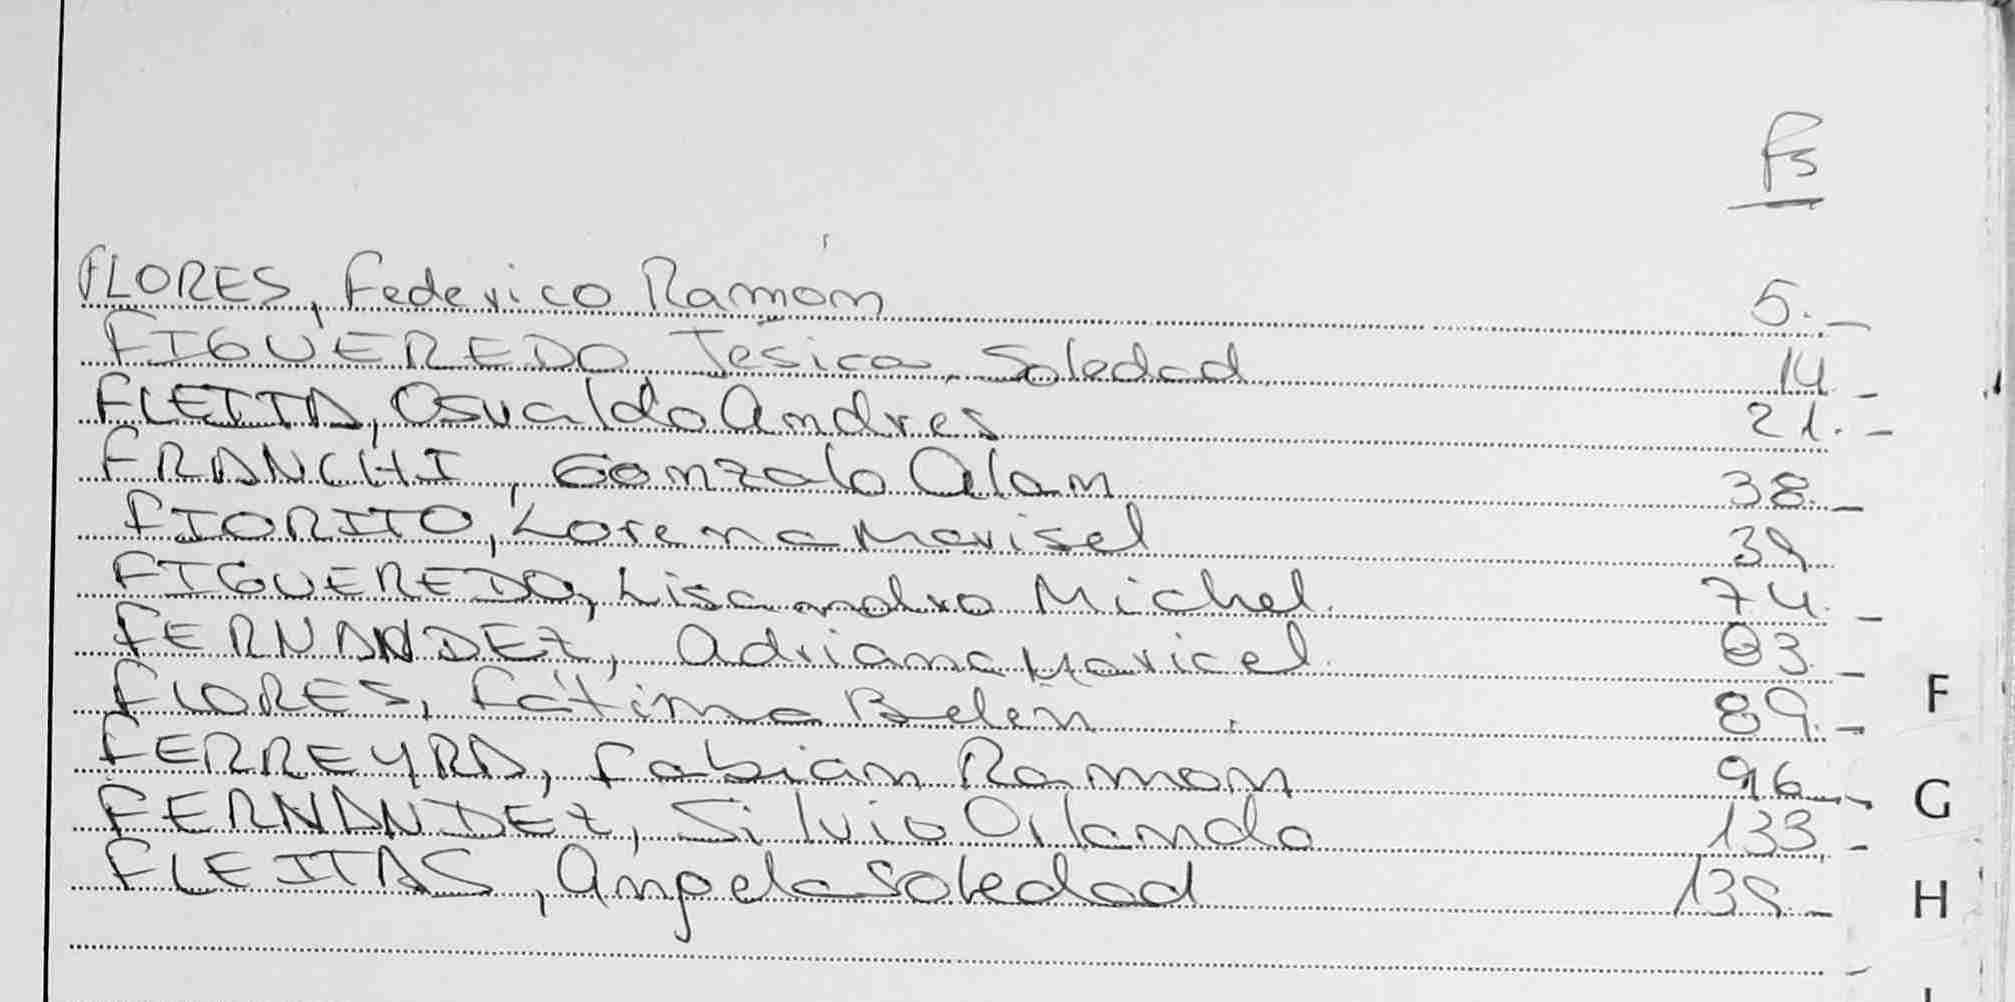 fs
FLORES, Federico Ramón 5.-
FIGUEREDO Jésica Soledad 14.-
FLEITA, Osvaldo Andres 21.-
FRANCHI, Gonzalo Alan 38.-
FIORITO, Lorena Marisel 39
FIGUEREDO, Lisandro Michel 74.-
FERNANDEZ, Adriana Maricel 83.-
FLORES, Fátima Belen 89.-
FERREYRA, Fabian Ramon 96.-
FERNANDEZ, Silvio Orlando 133.-
FLEITAS, Angela Soledad
F
G
H